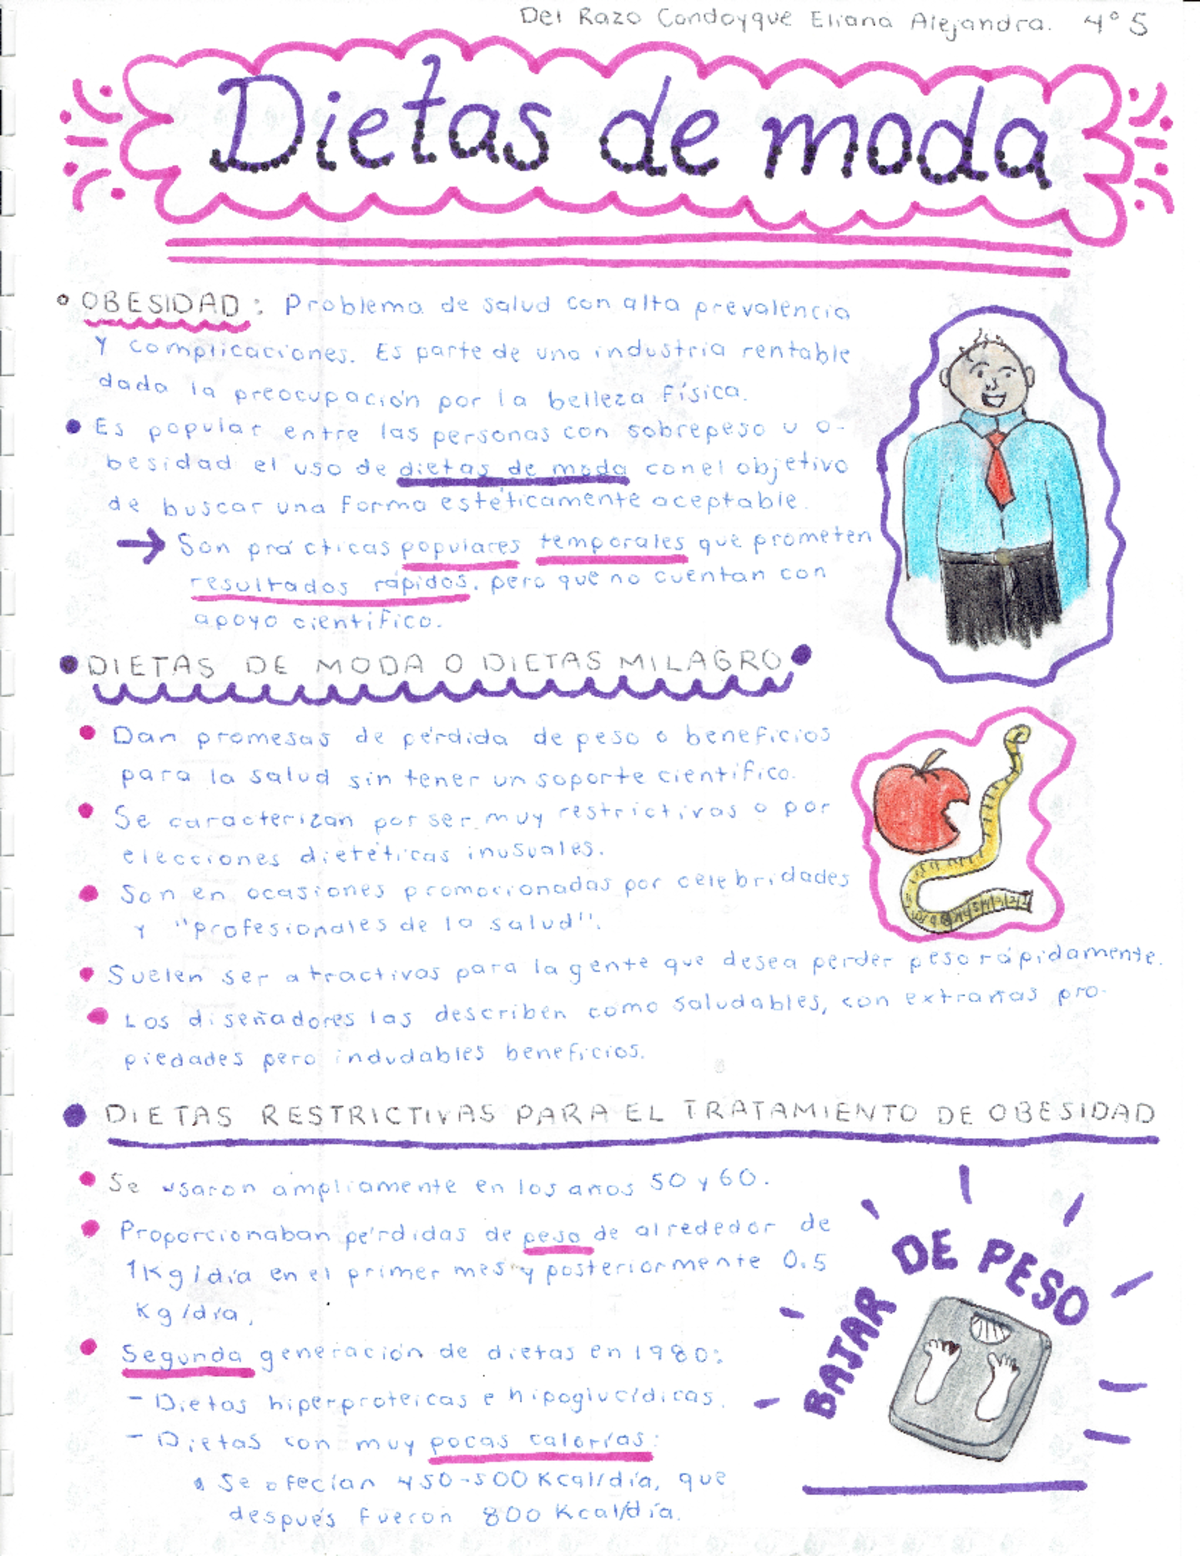 Del Razo Condoyque Eliana Alejandra. 4° 5
Dietas de moda
OBESIDAD: Problema de salud con alta prevalencia
y complicaciones. Es parte de una industria rentable
dada la preocupación por la belleza física.
Es popular entre las personas con sobrepeso u o-
besidad el uso de dietas de moda con el objetivo
de buscar una forma estéticamente aceptable.
→ Son prácticas populares temporales que prometen
resultados rápidos, pero que no cuentan con
apoyo científico.
DIETAS DE MODA O DIETAS MILAGRO
Dan promesas de pérdida de peso o beneficios
para la salud sin tener un soporte científico.
Se caracterizan por ser muy restrictivas o por
elecciones dietéticas inusuales.
Son en ocasiones promocionadas por celebridades
y "profesionales de la salud".
Suelen ser atractivos para la gente que desea perder peso rápidamente.
Los diseñadores las describen como saludables, con extrañas pro-
piedades pero indudables beneficios.
DIETAS RESTRICTIVAS PARA EL TRATAMIENTO DE OBESIDAD
Se usaron ampliamente en los años 50 y 60.
Proporcionaban pérdidas de peso de alrededor de
1Kg/día en el primer mes y posteriormente 0.5
Kg/día,
Segunda generación de dietas en 1980:
- Dietas hiperproteicas e hipoglucídicas.
- Dietas con muy pocas calorías:
Se ofecían 450-500 Kcal/día, que
después fueron 800 Kcal/día.
BAJAR DE PESO